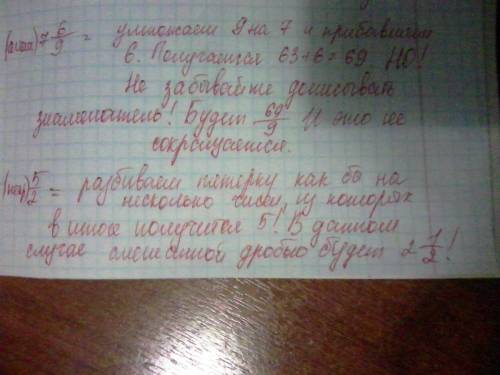 (смеш) 7 6/9 = умножаем 9 на 7 и прибавляем
6. Получается 63+6=69. НО!
Не забывайте дописывать
знаменатель! Будет 69/9 И это не
сокращается.
(непр) 5/2 = разбиваем пятерку как бы на
несколько чисел, из которых
в итоге получится 5! В данном
случае смешанной дробью будет 2 1/2!